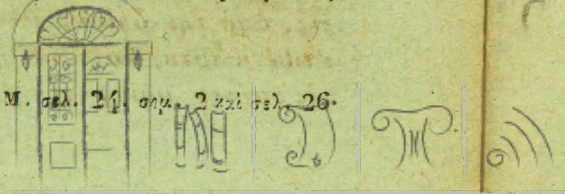 Μ. σελ. 24. σημ. 2 καὶ σελ. 26.